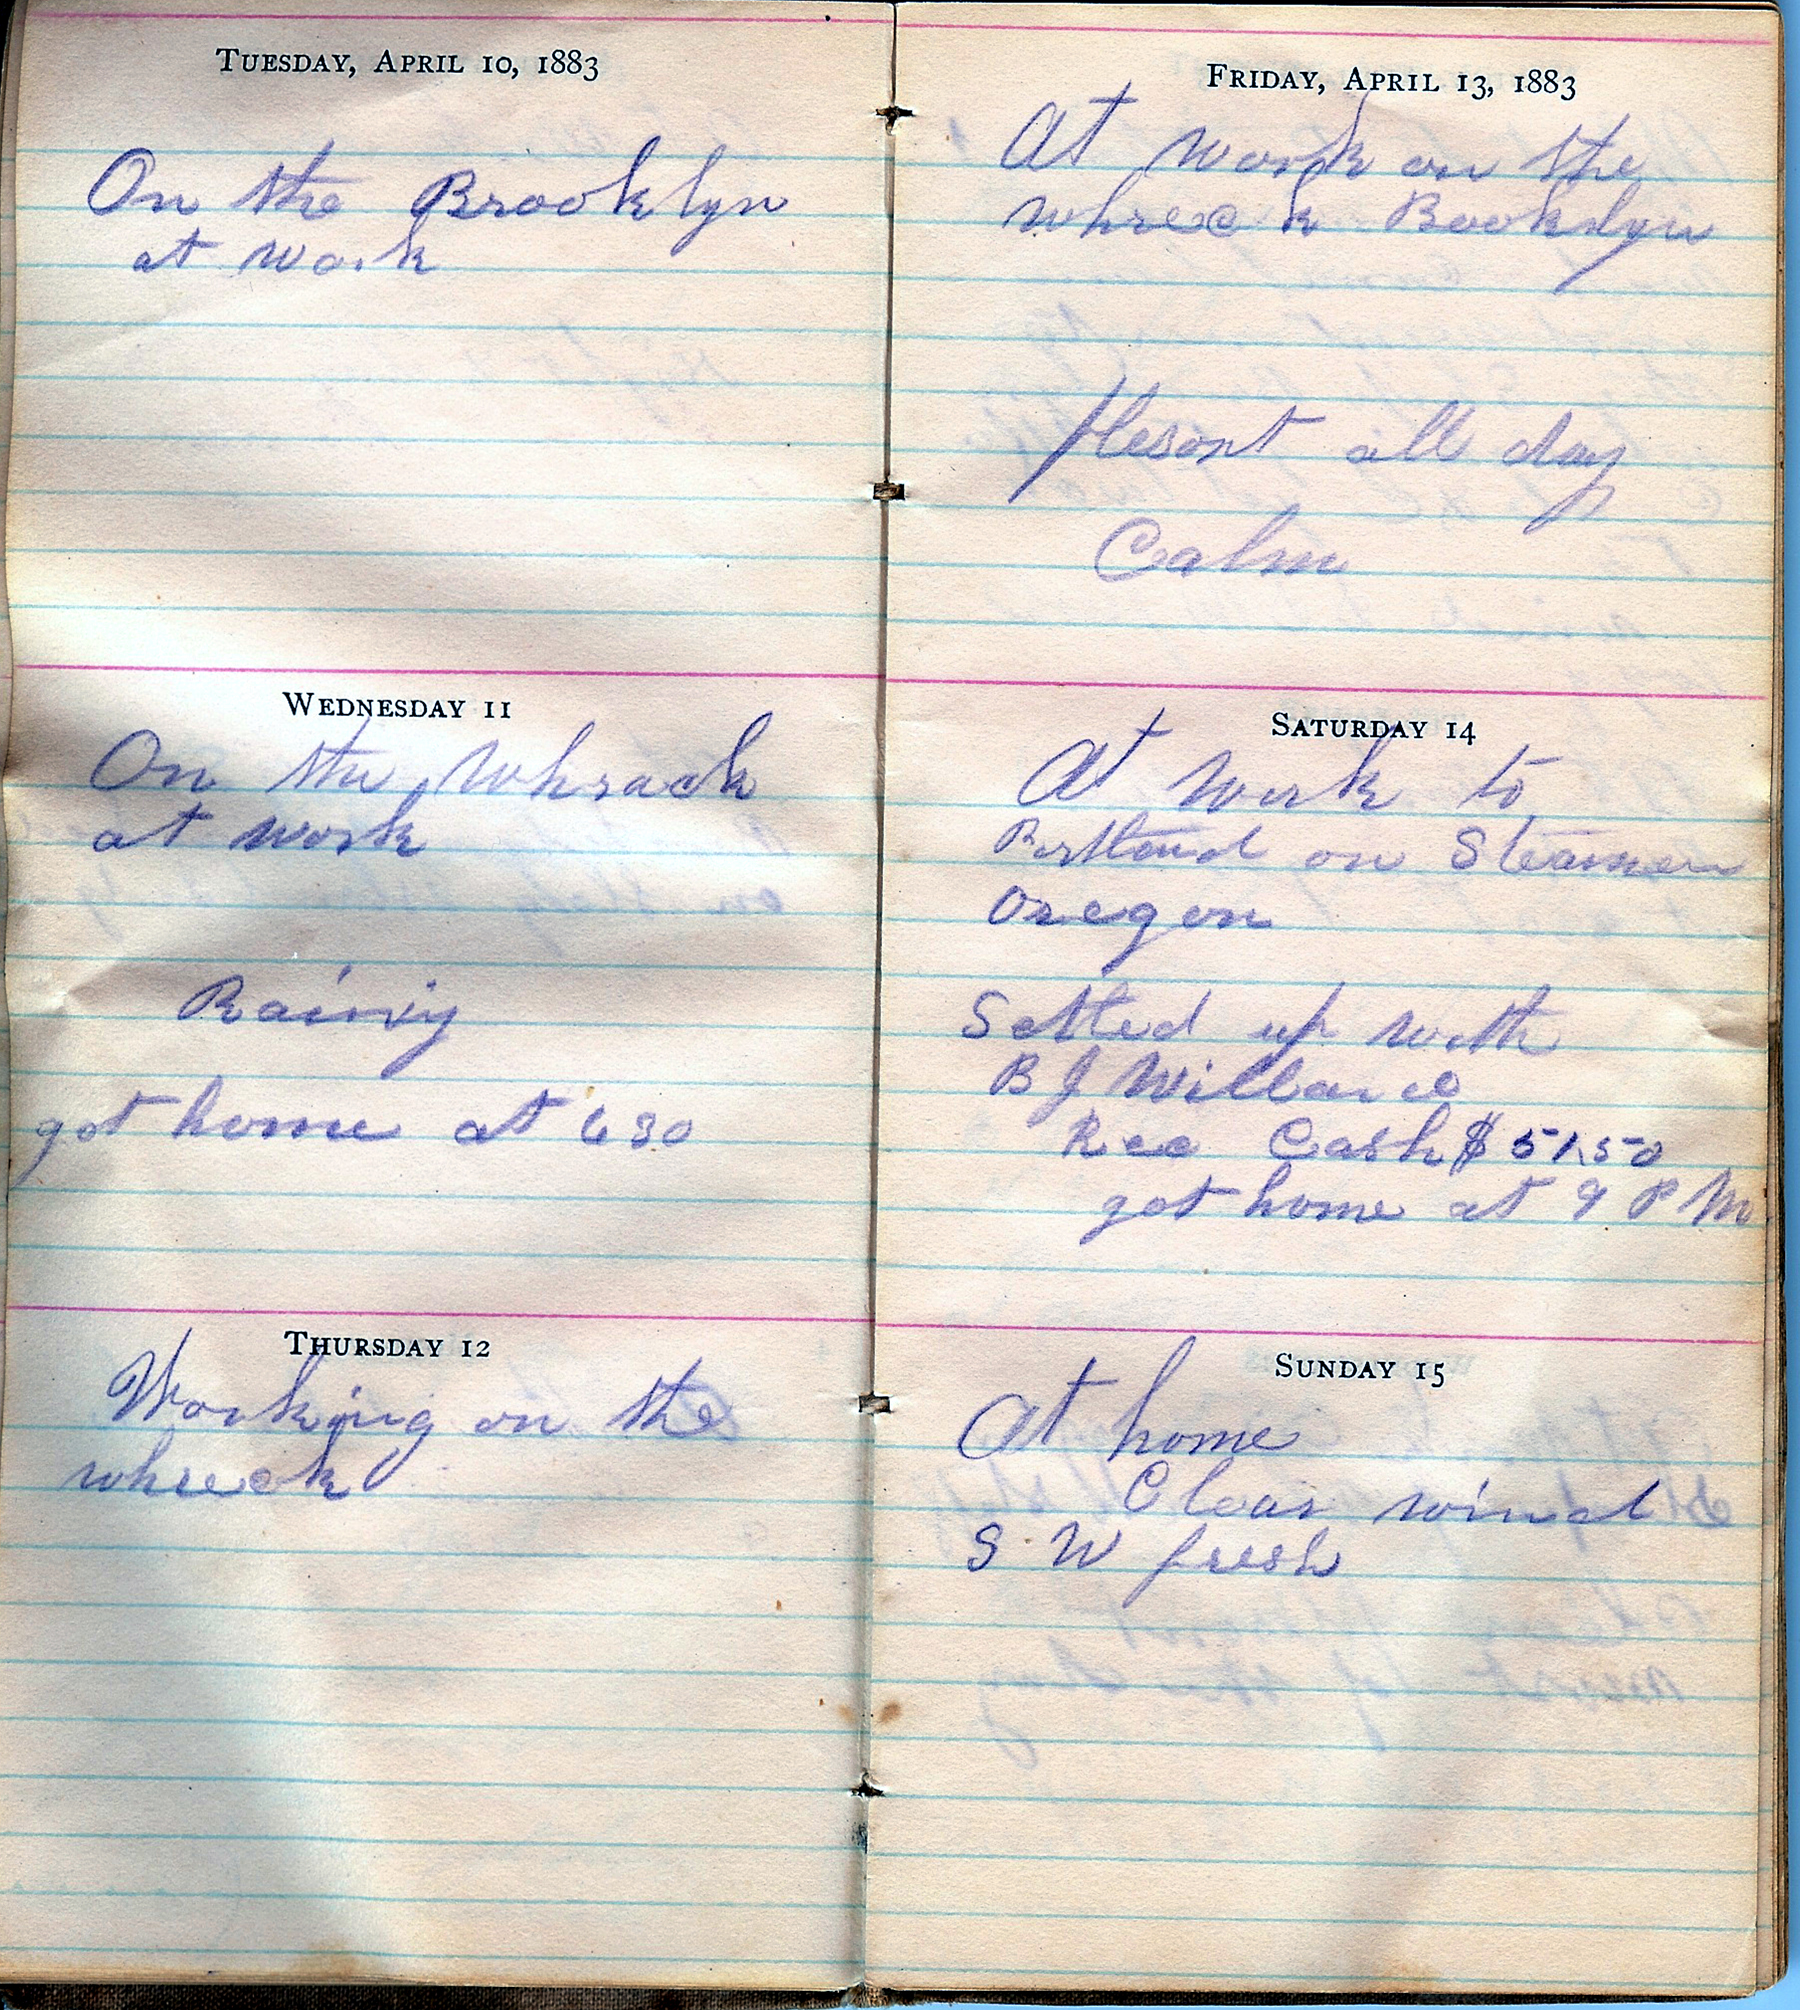 TUESDAY, APRIL 10, 1883
On the Brooklyn
at work
WEDNESDAY 11
On the Whrack
at work
Rainy
got home at 630
THURSDAY 12
Working on the
whreck
FRIDAY, APRIL 13, 1883
At work on the
whreck Booklyn
Plesont all day
Calm
SATURDAY 14
At work to
Portland on Steamer
Oregon
Settled up with
B J Willard
Rec Cash $51.50
got home at 9 P M
SUNDAY 15
At home
Clear wind
S W fresh